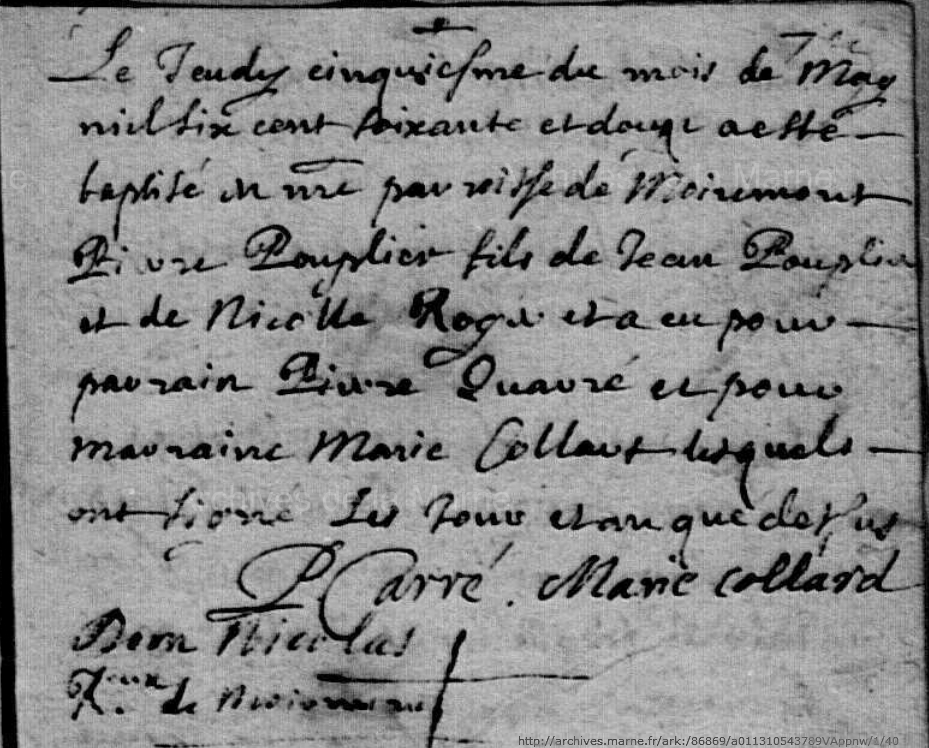 Le Jeudy cinquiesme du mois de May
mil six cent soixante et douze a esté
baptisé en nre parroisse de Moiremont
Pierre Pouplier fils de Jean Pouplier
et de Nicolle Roger et a eu pour
parrain Pierre Quarré et pour
marraine Marie Collart lesquels
ont signé Les Jour et an que dessus
P Carré. Marie collard
Dom Nicolas
de Moiremont
Archives de la Marne
http://archives.marne.fr/ark:/86869/a011310543789VAppnw/1/40